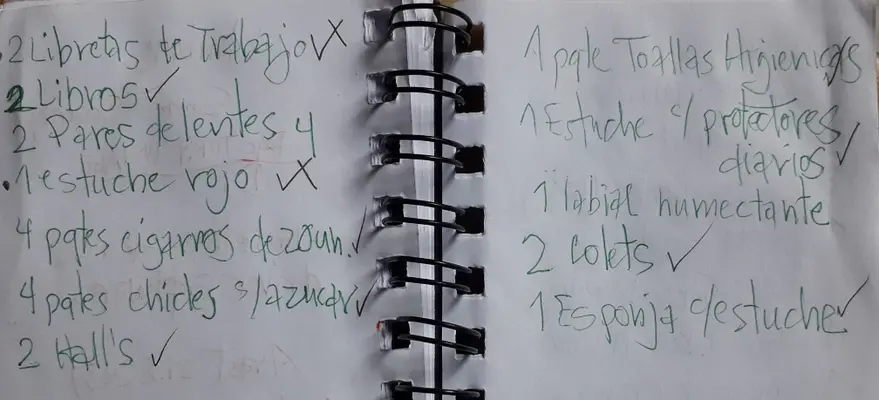 . 2 Libretas de Trabajo ✓ X
2 Libros ✓
2 Pares de lentes 4
. 1 estuche rojo ✓ X
4 pqtes cigarros de 20un. ✓
4 pqtes chicles s/azucar ✓
2 Hall's ✓
1 pqte Toallas Higienicas
1 Estuche c/ protectores
diarios ✓
1 labial humectante
2 Colets ✓
1 Esponja c/estuche ✓